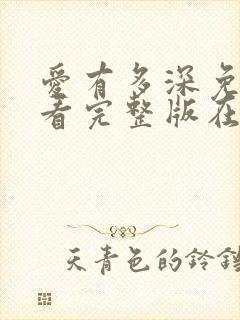 愛有多深免
看完整版在
天青色的鈴鐺